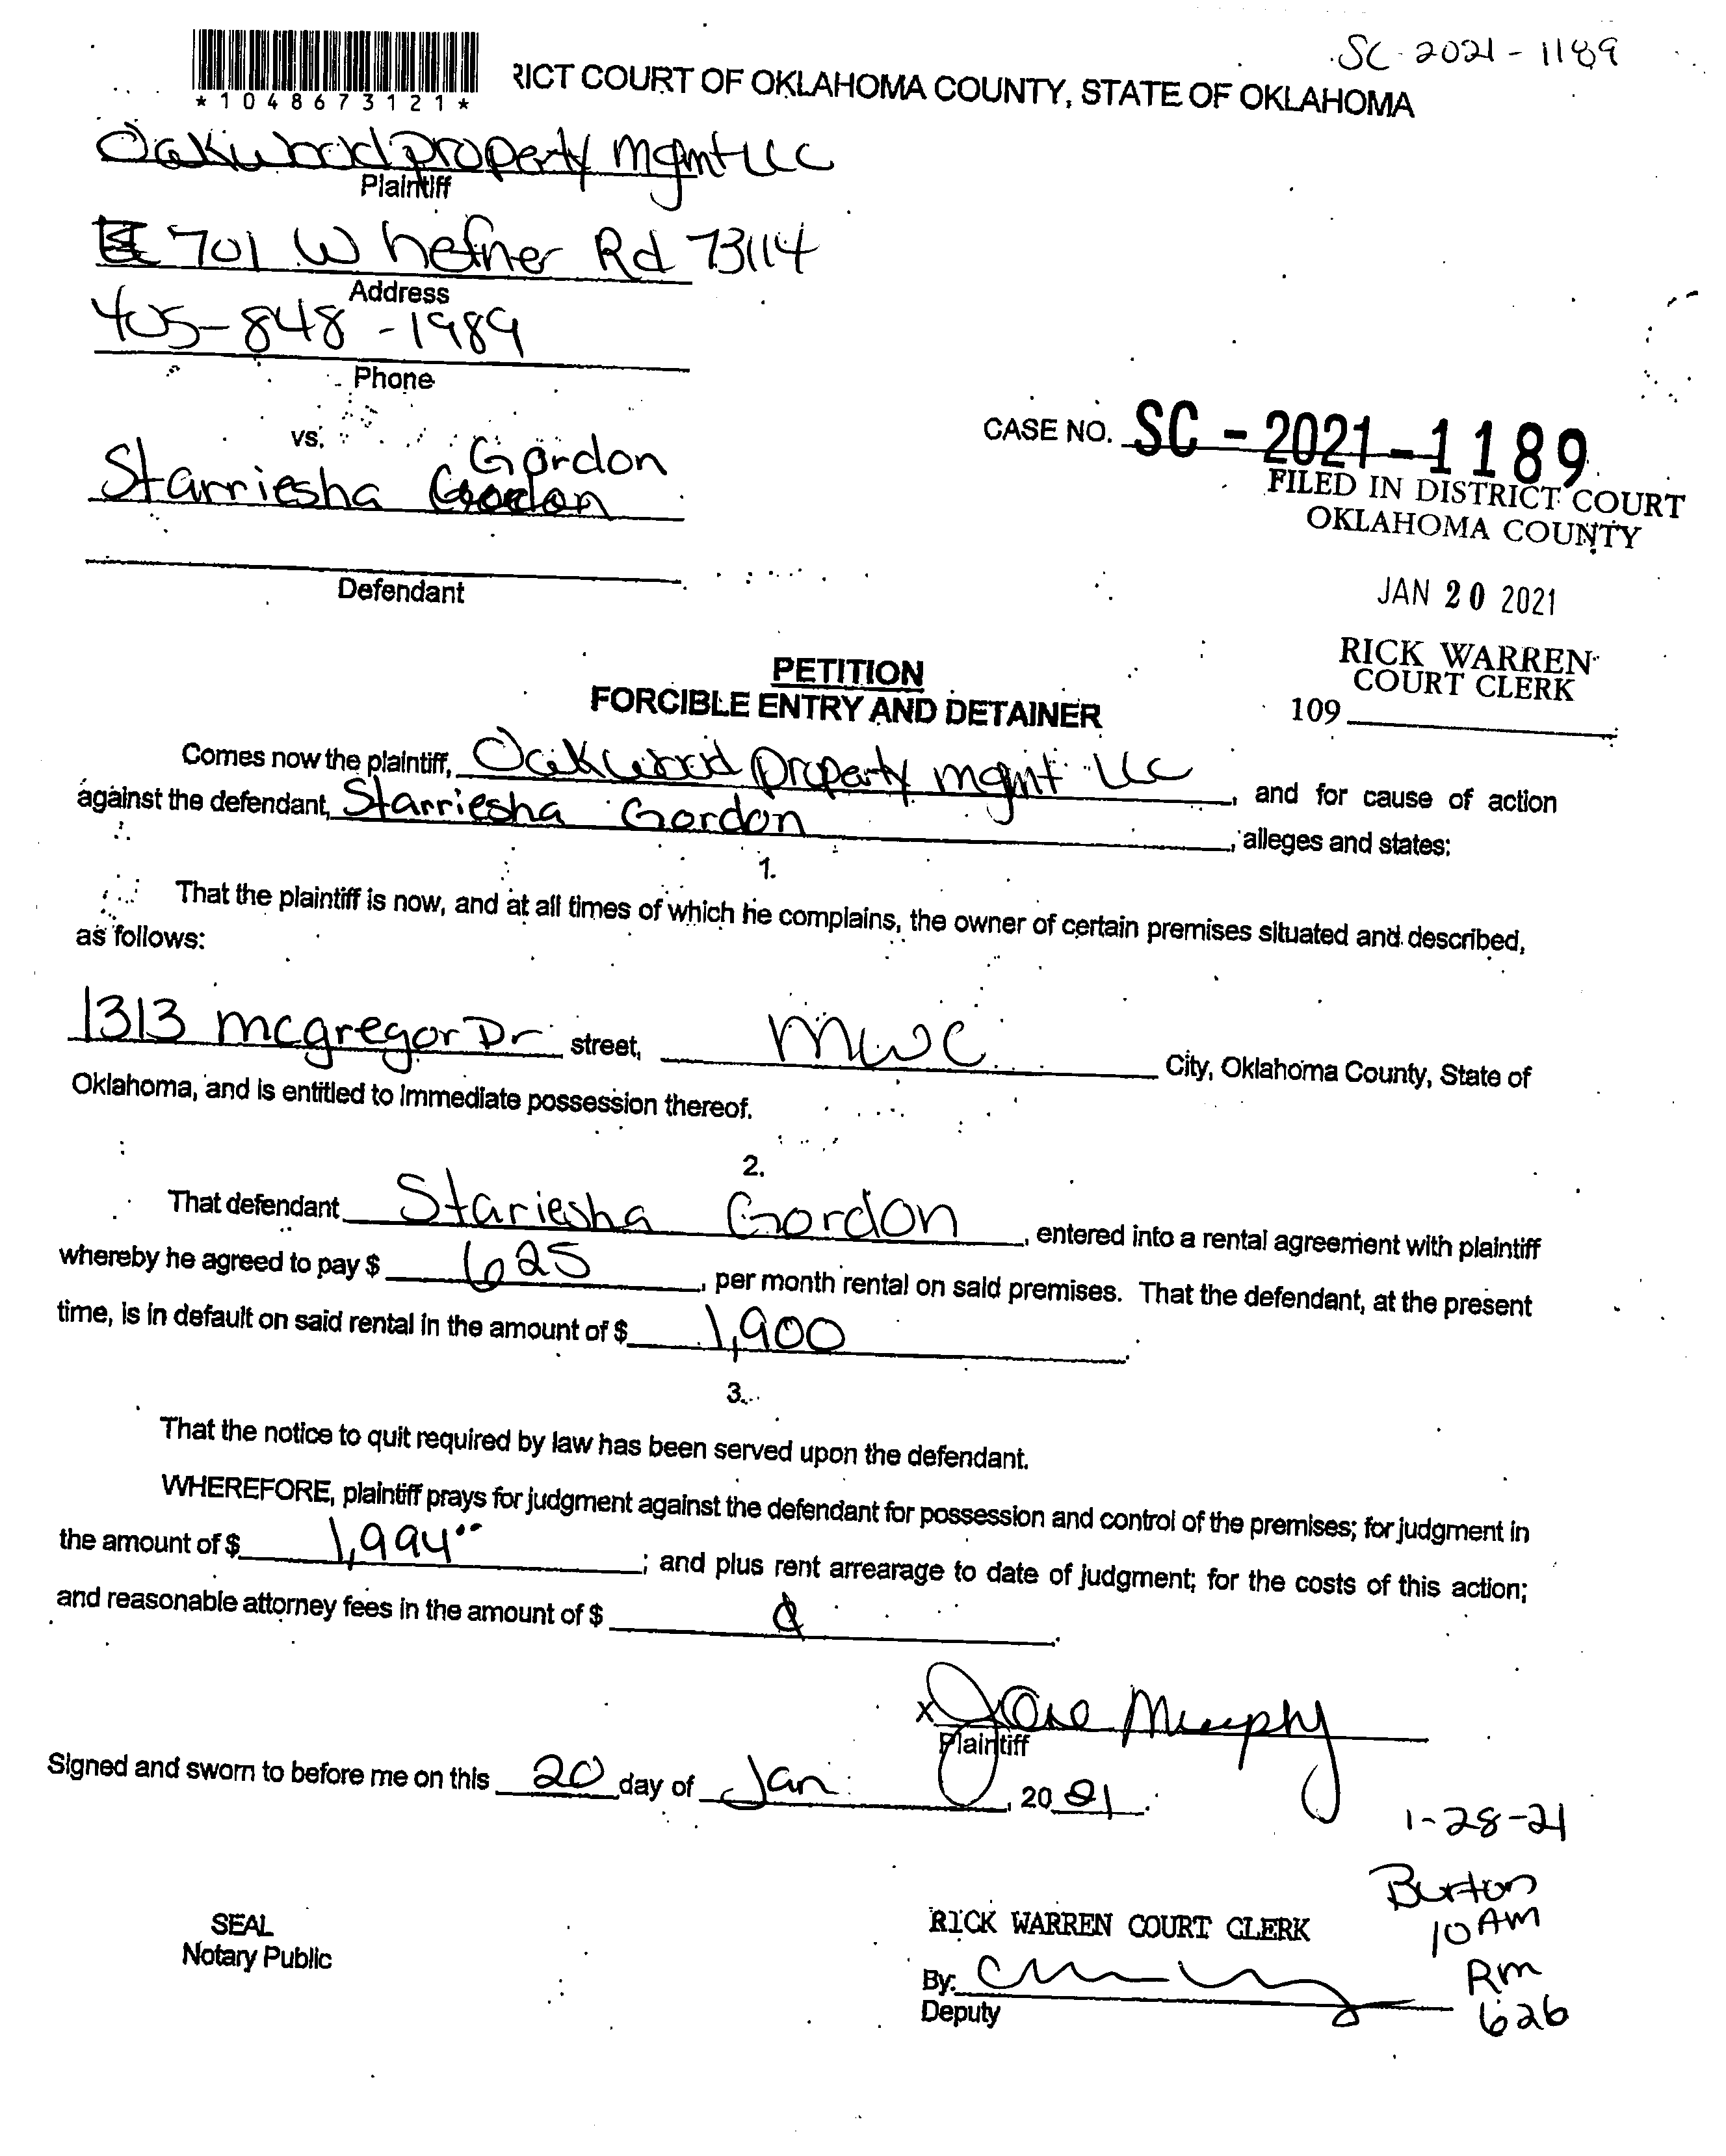 SC-2021-1189
*1048673121*
RICT COURT OF OKLAHOMA COUNTY, STATE OF OKLAHOMA
Oakwood property mgmt LLC
Plaintiff
701 W hefner Rd 73114
Address
405-848-1989
Phone
vs.
Gordon
Starriesha Gordon
Defendant
CASE NO. SC-2021-1189
FILED IN DISTRICT COURT
OKLAHOMA COUNTY
JAN 20 2021
RICK WARREN
COURT CLERK
109
PETITION
FORCIBLE ENTRY AND DETAINER
Comes now the plaintiff, Oakwood property mgmt LLC, and for cause of action
against the defendant, Starriesha Gordon, alleges and states:
1.
That the plaintiff is now, and at all times of which he complains, the owner of certain premises situated and described,
as follows:
1313 mcgregor Dr street, MWC City, Oklahoma County, State of
Oklahoma, and is entitled to immediate possession thereof.
2.
That defendant Stariesha Gordon, entered into a rental agreement with plaintiff
whereby he agreed to pay $ 625, per month rental on said premises. That the defendant, at the present
time, is in default on said rental in the amount of $ 1,900.
3.
That the notice to quit required by law has been served upon the defendant.
WHEREFORE, plaintiff prays for judgment against the defendant for possession and control of the premises; for judgment in
the amount of $ 1,994⁰⁰; and plus rent arrearage to date of judgment; for the costs of this action;
and reasonable attorney fees in the amount of $
x Jane Murphy
Plaintiff
Signed and sworn to before me on this 20 day of Jan, 2021.
1-28-21
Burton
10 AM
Rm
626
SEAL
Notary Public
RICK WARREN COURT CLERK
By:
Deputy